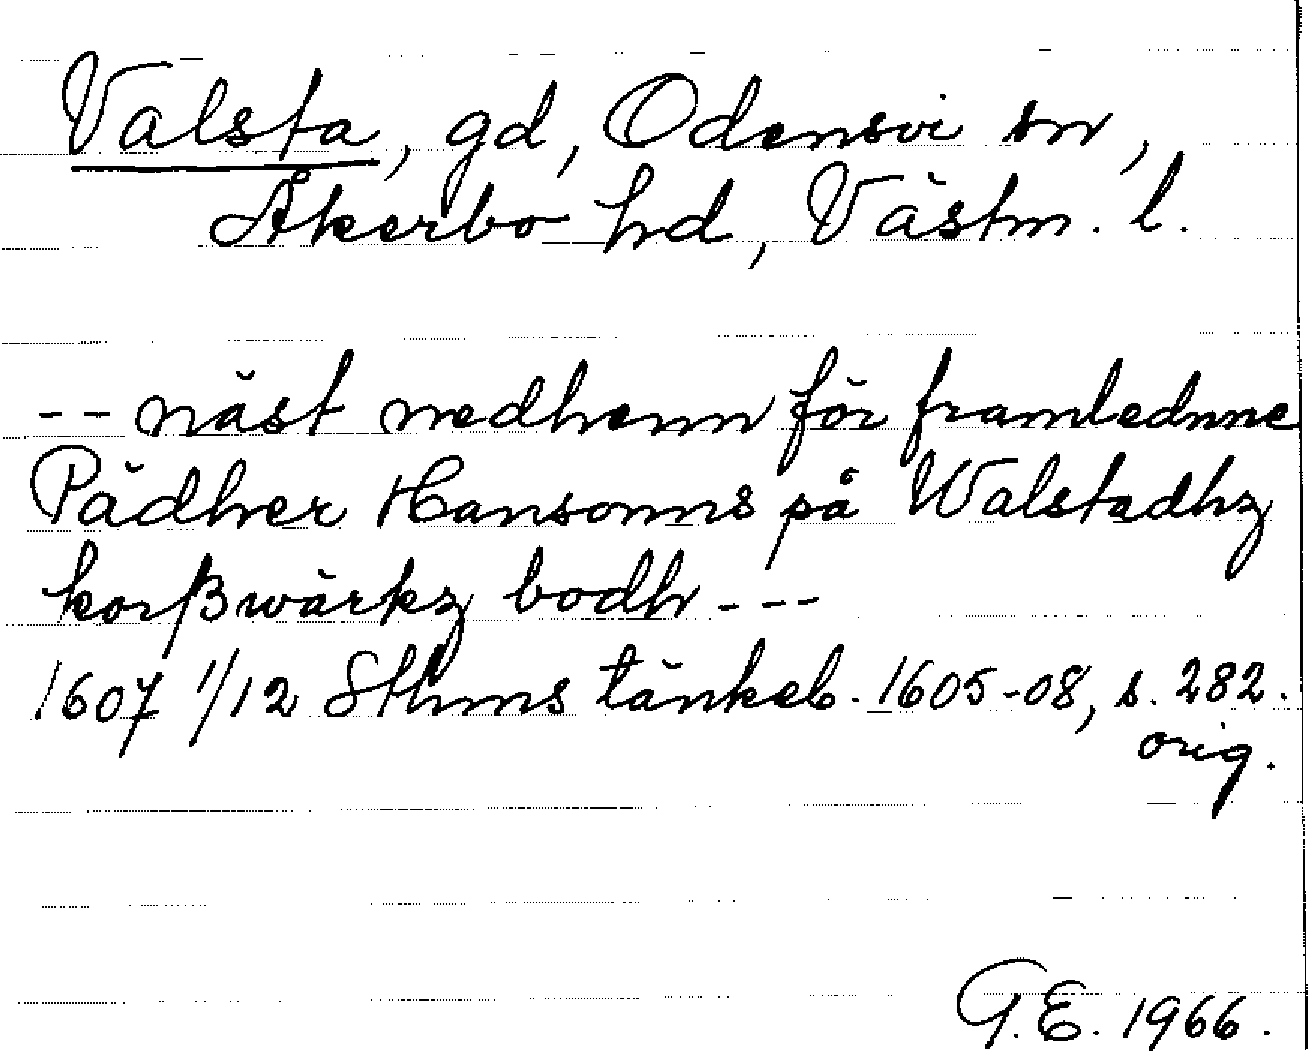 Valsta, gd, Odensvi sn,
Åkerbo hd, Västm. l.
-- näst nedhenn för framlednne
Pädher Hansonns på Walstadhz
korßwärkz bodh ---
1607 1/12 Sthms tänkeb. 1605-08, s. 282.
orig.
G.E. 1966.